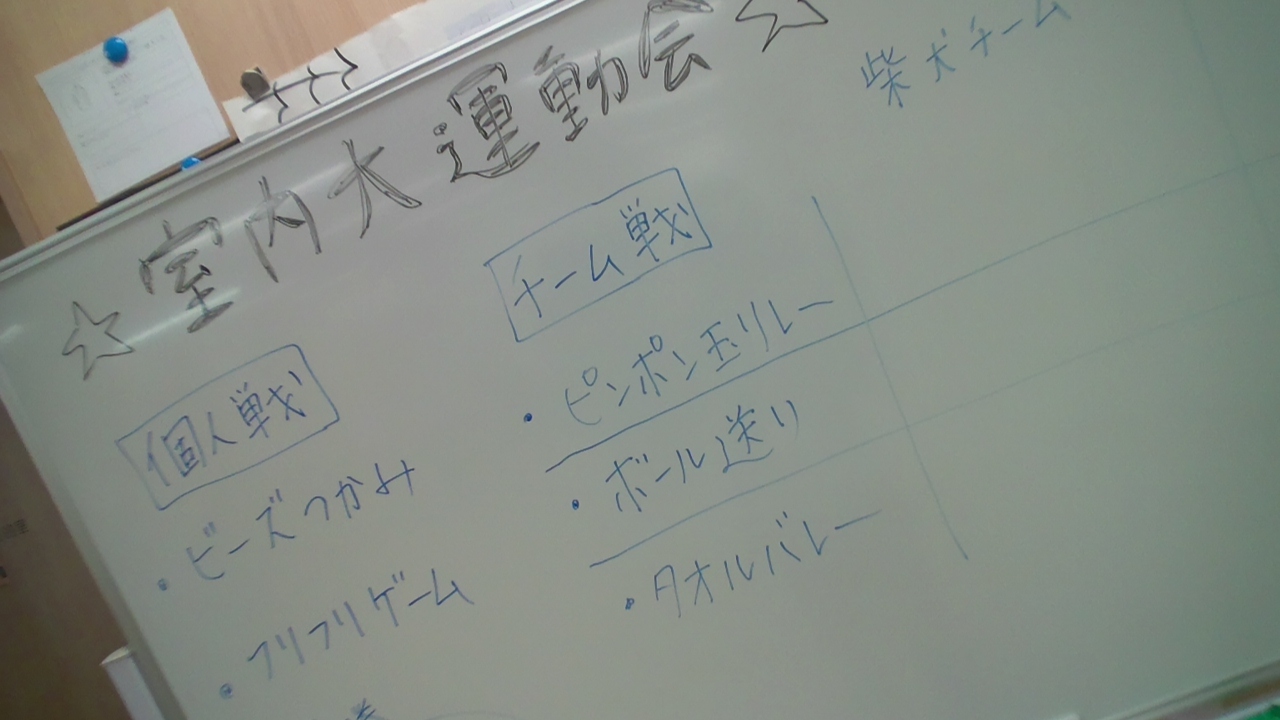 ☆室内大運動会☆
個人戦
・ビーズつかみ
・フリフリゲーム
チーム戦
・ピンポン玉リレー
・ボール送り
・タオルバレー
柴犬チーム